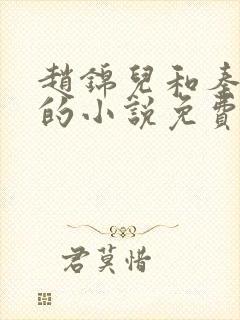 趙錦兒和秦
的小說免費
君莫惜